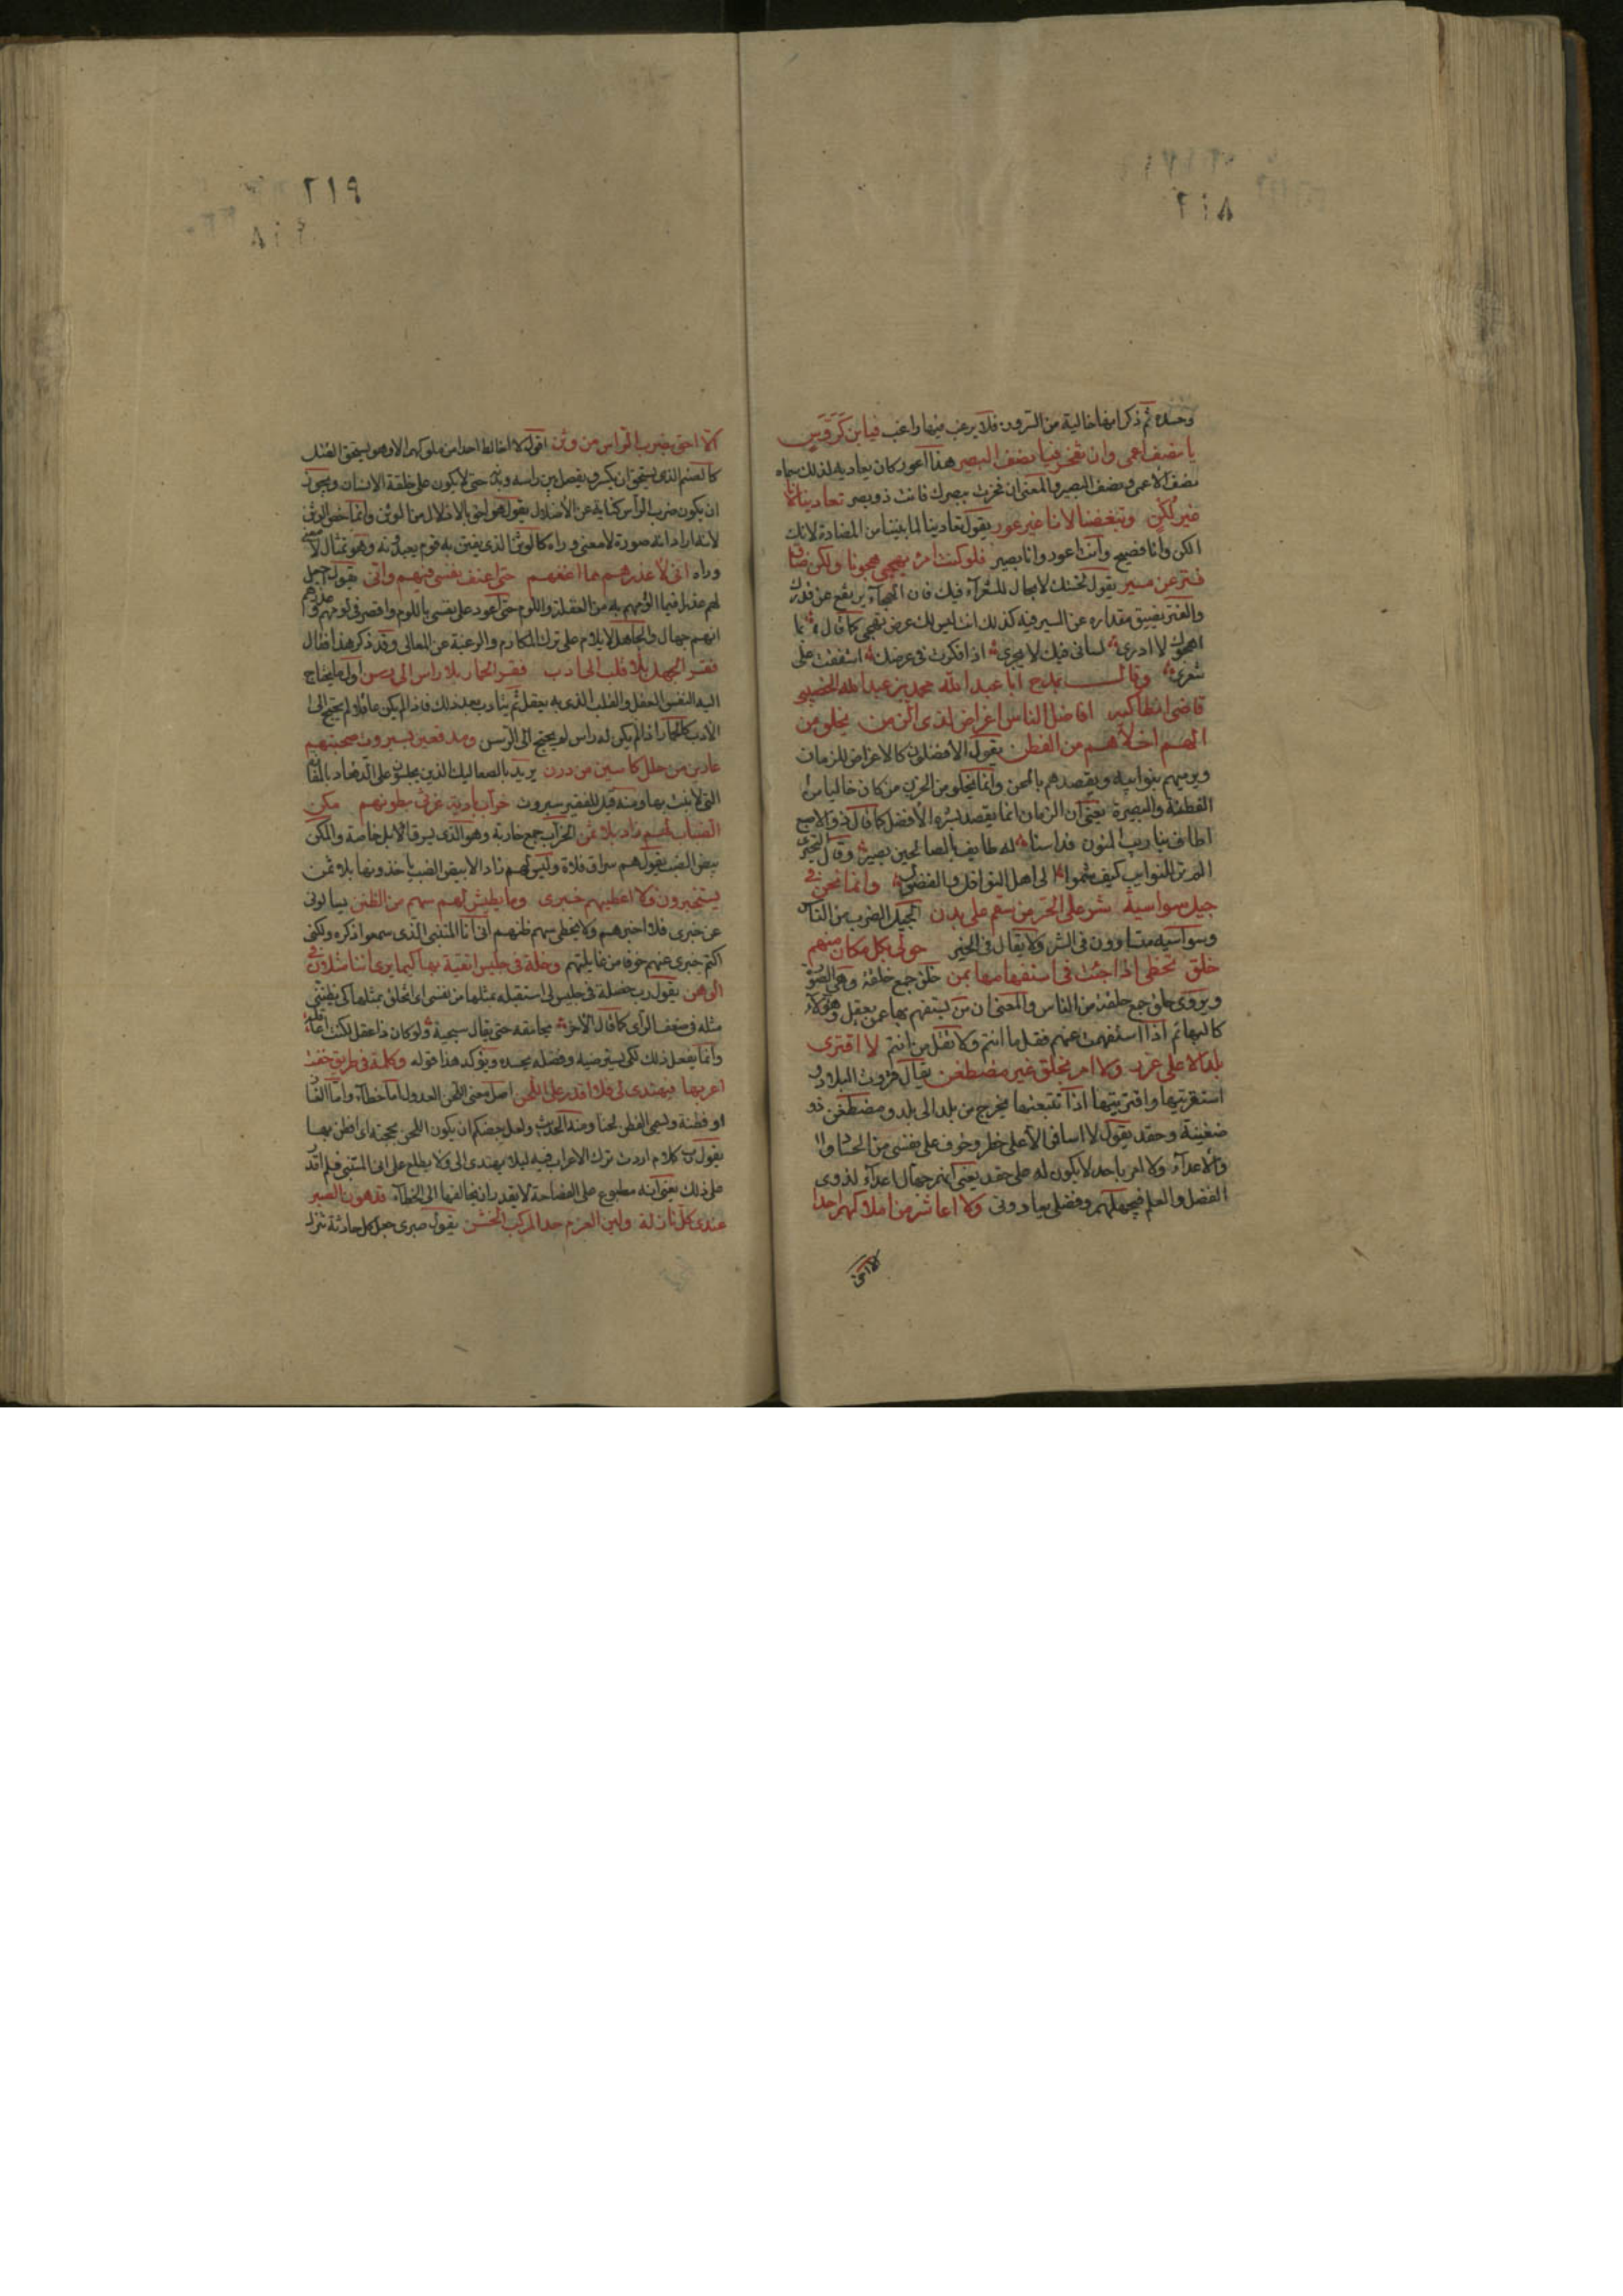 ٢١٨
وحده ثم ذكر انها خالية من السرور فلا يرغب فيها راغب فيا ابن كروس
يا نصف اعمى وان تفخر فيا نصف البصير هذا اعور كان يعاديه لذلك سماه
نصف الاعمى ونصف البصير والمعنى ان فخرت ببصرك فانت ذو بصر تعادينا لانا
غير لكن وتبغضنا لانا غير عور يقول تعادينا لما بيننا من المضادة لانك
الكن وانا فصيح وانت اعور وانا بصير فلو كنت امرء يهجى هجونا ولكن ضاق
فتر عن مسير يقول لخستك لا مجال للشعراء فيك فان الهجاء يرتفع عن قدرك
والفتر يضيق مقداره عن السير فيه كذلك انت ليس لك عرض يهجى كما قال بما
اهجوك لا ادرى لسانى فيك لا يجرى اذا فكرت فى عرضك اشفقت على
شعرى وقال يمدح ابا عبد الله محمد بن عبد الله الخصيبى
قاضى انطاكيه افاضل الناس اغراض لذى الزمن يخلو من
الهم اخلاهم من الفطن يقول الافضلون كالاغراض للزمان
ويرميهم بنوايبه ويقصدهم بالمحن وانما يخلو من الحزن من كان خاليا من
الفطنة والبصيرة يعنى ان الزمان انما يقصد بشره الافضل كما قال ذو الاصبع
اطاف بنا ريب المنون فداسنا له طايف بالصالحين بصير وقال البحترى
الم تر للنوايب كيف تسموا الى اهل النوافل والفضول وانما نحن فى
جيل سواسية شر على الحر من سقم على بدن الجيل الضرب من الناس
وسواسيه متساوون فى الشر ولا يقال فى الخير حولى بكل مكان منهم
خلق تخطى اذا جئت فى استفهامها بمن خلق جمع خلقة وهى الصورة
ويروى حلق جمع حلقة من الناس والمعنى ان من يستفهم بها عمن يعقل وهؤلاء
كالبهائم اذا استفهمت عنهم فقل ما انتم ولا تقل من انتم لا اقترى
بلدا الا على غرر ولا امر بخلق غير مضطغن يقال قروت البلاد و
استقريتها واقتريتها اذا تتبعتها تخرج من بلد الى بلد ومضطغن ذو
ضغينة وحقد يقول لا اسافر الا على خطر وخوف على نفسى من الحساد
والاعداء ولا امر باحد لا يكون له على حقد يعنى انهم جهال اعداء لذوى
الفضل والعلم فجهلهم وفضلى يعادونى ولا اعاشر من املاكهم احدا
الا احق
٢١٩
الا احق بضرب الراس من وثن اقول لا اخالط احدا من ملوكهم الا وهو يستحق القتل
كالصنم الذى يستحق ان يكسر ويفصل بين راسه وبدنه حتى لا يكون على خلقة الانسان ويجوز
ان يكون ضرب الراس كناية عن الاذلال يقول هو احق بالاذلال من الوثن وانما خص الوثن
لانه اراد انه صورة لا معنى وراه كالوثن الذى يفتن به قوم يعبدونه وهو تمثال لا معنى
وراه انى لاعذرهم مما اعنفهم حتى اعنف نفسى فيهم وانى يقول اجعل
لهم عذرا فيما الومهم به من الغفلة واللوم حتى اعود على نفسى باللوم واقصر فى لومهم وعذرهم
انهم جهال والجاهل لا يلام على ترك المكارم والرغبة عن المعالى وقد ذكر هذا فقال
فقر الجهول بلا قلب الى ادب فقر الحمار بلا راس الى رسن اول ما يحتاج
اليه النفس العقل والقلب الذى به يعقل ثم يتادب بعد ذلك فاذا لم يكن عاقلا لم يحتج الى
الادب كالحمار اذا لم يكن له راس لم يحتج الى الرسن ومدقعين بسبروت صحبتهم
عارين من حلل كاسين من درن يريد بالصعاليك الذين يجلسون على الدقعاء
التى لا نبت بها ومنه قيل للفقير سبروت خراب بادية غرثى بطونهم مكن
الضباب لهم زاد بلا ثمن الخراب جمع خارب وهو الذى يسرق الابل خاصة والمكن
بيض الضب يقول هم سراق فلاة وليس لهم زاد الا بيض الضب ياخذونها بلا ثمن
يستخبرون فلا اعطيهم خبرى وما يطيش لهم سهم من الظنن يسالونى
عن خبرى فلا اخبرهم ولا يخطى سهم ظنهم انى انا المتنبى الذى سمعوا ذكره ولكنى
اكتم خبرى عنهم خوفا من غايلتهم وخلة فى جليس اتقيه بها كيما يرى اننا مثلان فى
الوهن يقول رب خصلة فى جليس لى استقبله بمثلها من نفسى اى اتخلق بمثلها كى يظننى
مثله فى ضعف الراى كما قال الاخر احامقه حتى يقال سجية ولو كان ذا عقل لكنت اعاقله
وانما يفعل ذلك لكى يستر منه وفضله يحسده ويؤكد هذا قوله وكلمة فى طريق خفت
اعربها فيهتدى لى فلا اقدر على اللحن اصل معنى اللحن العدول اما خطاء واما الغازا
او فطنة ويسمى الفطن لحنا ومنه الحديث ولعل بعضكم ان يكون الحن بحجته اى افطن بها
يقول رب كلام اردت ترك الاعراب فيه ليلا يهتدى الى ولا يطلع على انى المتنبى فلم اقدر
على ذلك يعنى انه مطبوع على الفصاحة لا يقدر ان يخالفها الى الخطاء قد هون الصبر
عندى كل نازلة ولين العزم حد المركب الخشن يقول صبرى جعل كل حادثة تنزل